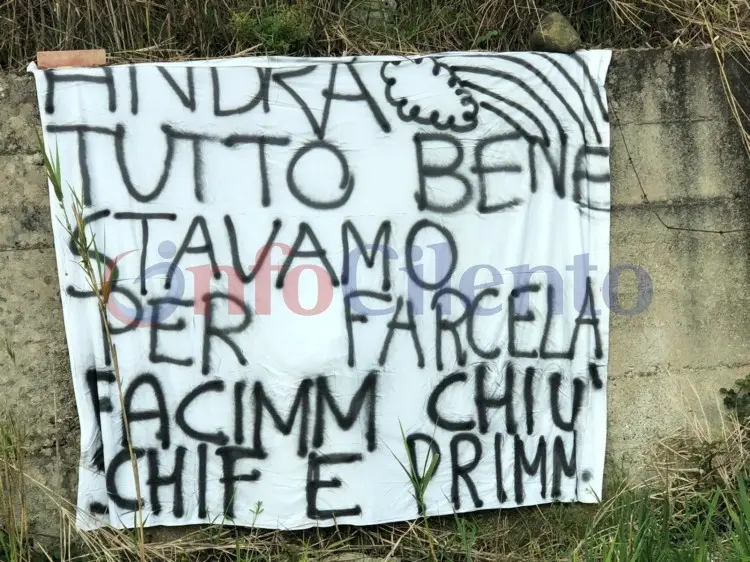 ANDRÀ
TUTTO BENE
STAVAMO
PER FARCELA
FACIMM CHIÙ
SCHIF E PRIMM.
infoCilento